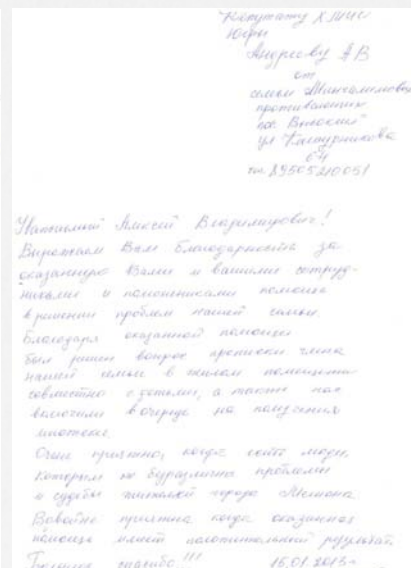 Депутату
Югры
Андрееву АВ
от
семьи
проживающих
пос. Высокий
ул
тел 89505210051
Уважаемый Алексей Владимирович!
Выражаем Вам благодарность за
оказанную Вами и вашими сотруд-
никами и помощниками помощь
в решении проблем нашей семьи.
Благодаря оказанной помощи
был решен вопрос прописки члена
нашей семьи в жилом помещении
совместно с детьми, а также нас
включили в очередь на получение
ипотеки.
Очень приятно, когда есть люди,
которым не безразличны проблемы
и судьбы жителей города
приятна когда оказанная
помощь имеет положительный результат.
Большое спасибо!!! 15.01.2013г